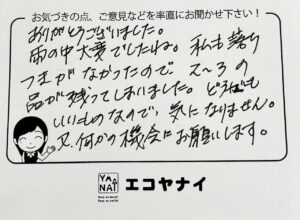 お気づきの点、ご意見などを率直にお聞かせ下さい！
ありがとうございました。
雨の中大変でしたね。私も落ち
つきがなかったので 2〜3の
品が残ってしまいました。どうでも
いいものなので、気になりません。
又、何かの機会にお願いします。
YA
NAI
エコヤナイ